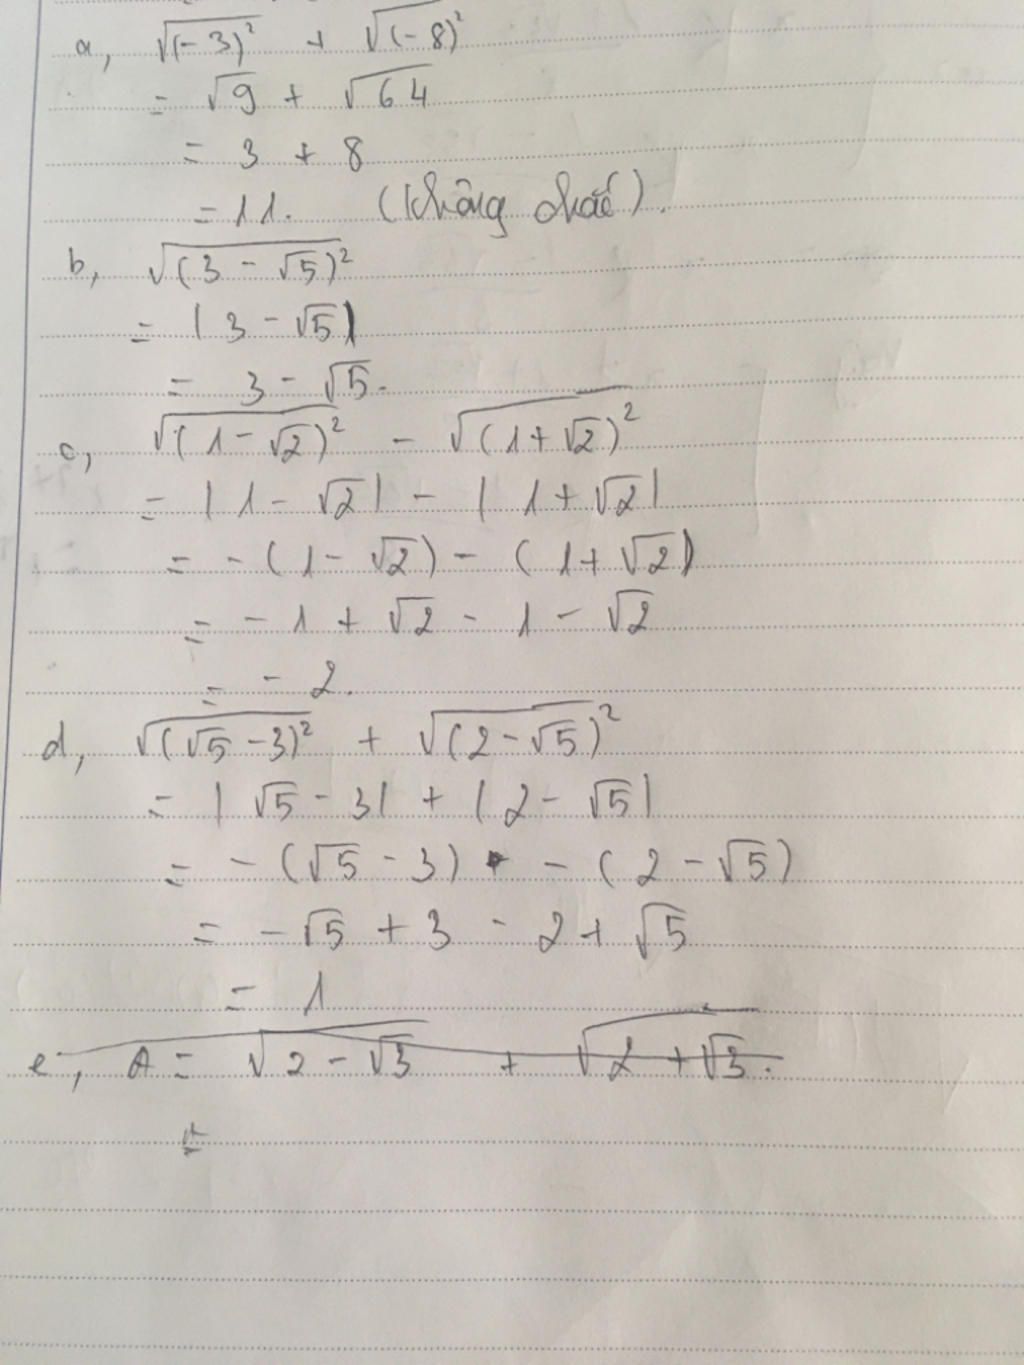 a, √(-3)² + √(-8)²
= √9 + √64
= 3 + 8
= 11. (không chắc).
b, √(3 - √5)²
= |3 - √5|
= 3 - √5.
c, √(1 - √2)² - √(1 + √2)²
= |1 - √2| - |1 + √2|
= -(1 - √2) - (1 + √2)
= -1 + √2 - 1 - √2
= -2.
d, √(√5 - 3)² + √(2 - √5)²
= |√5 - 3| + |2 - √5|
= -(√5 - 3) - (2 - √5)
= -√5 + 3 - 2 + √5
= 1
e, A = √2 - √3 + √2 + √3.
=